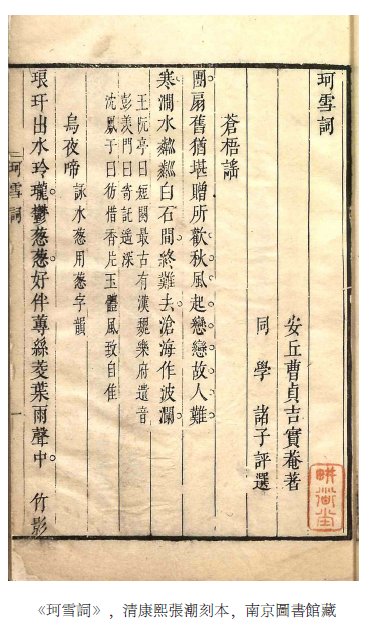 珂雪詞
安丘曹貞吉實菴著
同學諸子評選
蒼梧謠
團扇舊猶堪贈所歡。秋風起。戀戀故人難。
寒澗水粼粼白石間。終難去。滄海作波瀾。
王阮亭曰短闋最古有漢魏樂府遺音
彭羨門曰寄託遙深
沈鳳于曰彷惜香片玉體風致自佳
烏夜啼 詠水葱用葱字韻
琅玕出水玲瓏。鬱葱葱。好伴蓴絲菱葉雨聲中。 竹影
珂雪詞 一
《珂雪詞》，清康熙張潮刻本，南京圖書館藏